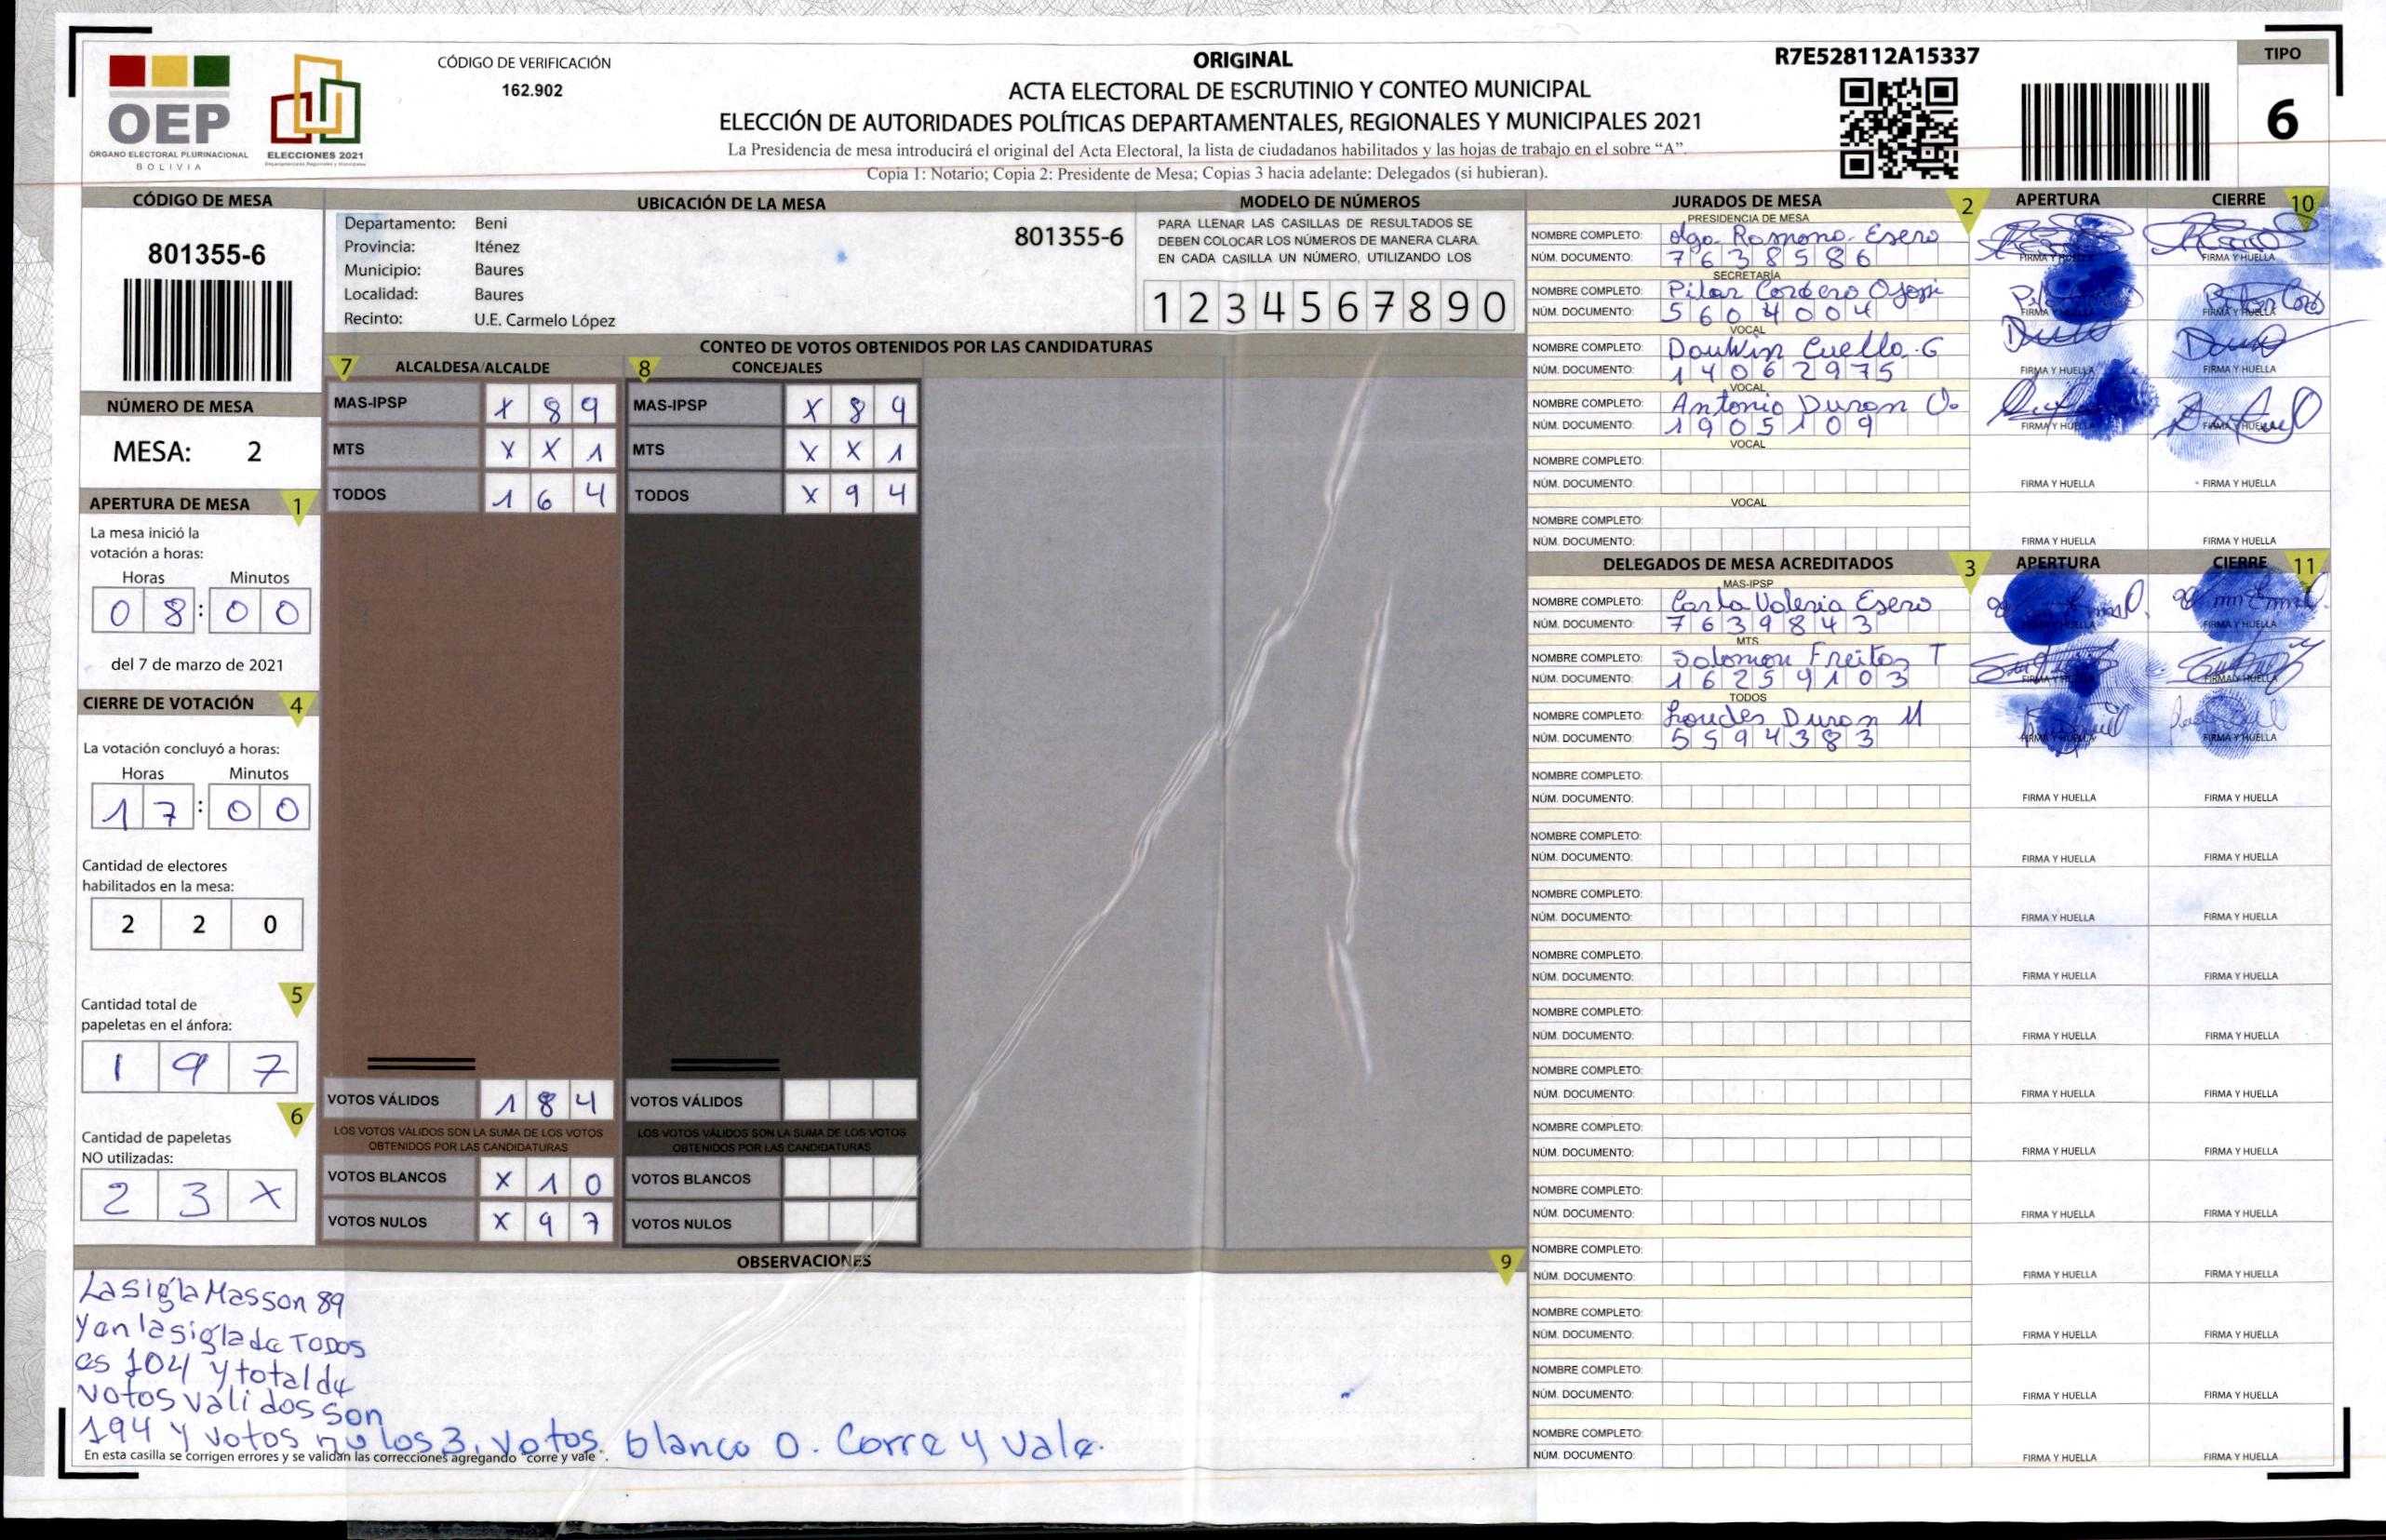 OEP
ÓRGANO ELECTORAL PLURINACIONAL
BOLIVIA
ELECCIONES 2021
CÓDIGO DE VERIFICACIÓN
162.902
ORIGINAL
ACTA ELECTORAL DE ESCRUTINIO Y CONTEO MUNICIPAL
ELECCIÓN DE AUTORIDADES POLÍTICAS DEPARTAMENTALES, REGIONALES Y MUNICIPALES 2021
La Presidencia de mesa introducirá el original del Acta Electoral, la lista de ciudadanos habilitados y las hojas de trabajo en el sobre “A”.
Copia 1: Notario; Copia 2: Presidente de Mesa; Copias 3 hacia adelante: Delegados (si hubieran).
R7E528112A15337
TIPO
6
CÓDIGO DE MESA
801355-6
NÚMERO DE MESA
MESA: 2
APERTURA DE MESA 1
La mesa inició la
votación a horas:
Horas Minutos
0 8 : 0 0
del 7 de marzo de 2021
CIERRE DE VOTACIÓN 4
La votación concluyó a horas:
Horas Minutos
1 7 : 0 0
Cantidad de electores
habilitados en la mesa:
2 2 0
5
Cantidad total de
papeletas en el ánfora:
1 9 7
6
Cantidad de papeletas
NO utilizadas:
2 3 X
UBICACIÓN DE LA MESA
Departamento: Beni
Provincia: Iténez
Municipio: Baures
Localidad: Baures
Recinto: U.E. Carmelo López
801355-6
MODELO DE NÚMEROS
PARA LLENAR LAS CASILLAS DE RESULTADOS SE
DEBEN COLOCAR LOS NÚMEROS DE MANERA CLARA.
EN CADA CASILLA UN NÚMERO, UTILIZANDO LOS
1 2 3 4 5 6 7 8 9 0
CONTEO DE VOTOS OBTENIDOS POR LAS CANDIDATURAS
7 ALCALDESA/ALCALDE
MAS-IPSP X 8 9
MTS X X 1
TODOS 1 6 4
VOTOS VÁLIDOS 1 8 4
LOS VOTOS VÁLIDOS SON LA SUMA DE LOS VOTOS
OBTENIDOS POR LAS CANDIDATURAS
VOTOS BLANCOS X 1 0
VOTOS NULOS X 9 7
8 CONCEJALES
MAS-IPSP X 8 9
MTS X X 1
TODOS X 9 4
VOTOS VÁLIDOS
LOS VOTOS VÁLIDOS SON LA SUMA DE LOS VOTOS
OBTENIDOS POR LAS CANDIDATURAS
VOTOS BLANCOS
VOTOS NULOS
OBSERVACIONES 9
La sigla Masson 89
y en la sigla de TODOS
es 104 y total de
votos validos son
194 y votos nulos 3, votos blanco 0. Corre y vale.
En esta casilla se corrigen errores y se validan las correcciones agregando “corre y vale”.
JURADOS DE MESA 2 APERTURA CIERRE 10
PRESIDENCIA DE MESA
NOMBRE COMPLETO: Esero
NÚM. DOCUMENTO: 7 6 3 8 5 8 6 FIRMA Y HUELLA FIRMA Y HUELLA
SECRETARÍA
NOMBRE COMPLETO: Pilar Cordero
NÚM. DOCUMENTO: 5 6 0 4 0 0 4 FIRMA Y HUELLA FIRMA Y HUELLA
VOCAL
NOMBRE COMPLETO: Cuello G
NÚM. DOCUMENTO: 1 4 0 6 2 9 7 5 FIRMA Y HUELLA FIRMA Y HUELLA
VOCAL
NOMBRE COMPLETO: Antonio Duran O.
NÚM. DOCUMENTO: 1 9 0 5 1 0 9 FIRMA Y HUELLA FIRMA Y HUELLA
VOCAL
NOMBRE COMPLETO:
NÚM. DOCUMENTO: FIRMA Y HUELLA FIRMA Y HUELLA
VOCAL
NOMBRE COMPLETO:
NÚM. DOCUMENTO: FIRMA Y HUELLA FIRMA Y HUELLA
DELEGADOS DE MESA ACREDITADOS 3 APERTURA CIERRE 11
MAS-IPSP
NOMBRE COMPLETO: Carla Valeria Esero
NÚM. DOCUMENTO: 7 6 3 9 8 4 3 FIRMA Y HUELLA FIRMA Y HUELLA
MTS
NOMBRE COMPLETO: Solomon Freitas T
NÚM. DOCUMENTO: 1 6 2 5 9 1 0 3 FIRMA Y HUELLA FIRMA Y HUELLA
TODOS
NOMBRE COMPLETO: Duran M
NÚM. DOCUMENTO: 5 5 9 4 3 8 3 FIRMA Y HUELLA FIRMA Y HUELLA
NOMBRE COMPLETO:
NÚM. DOCUMENTO: FIRMA Y HUELLA FIRMA Y HUELLA
NOMBRE COMPLETO:
NÚM. DOCUMENTO: FIRMA Y HUELLA FIRMA Y HUELLA
NOMBRE COMPLETO:
NÚM. DOCUMENTO: FIRMA Y HUELLA FIRMA Y HUELLA
NOMBRE COMPLETO:
NÚM. DOCUMENTO: FIRMA Y HUELLA FIRMA Y HUELLA
NOMBRE COMPLETO:
NÚM. DOCUMENTO: FIRMA Y HUELLA FIRMA Y HUELLA
NOMBRE COMPLETO:
NÚM. DOCUMENTO: FIRMA Y HUELLA FIRMA Y HUELLA
NOMBRE COMPLETO:
NÚM. DOCUMENTO: FIRMA Y HUELLA FIRMA Y HUELLA
NOMBRE COMPLETO:
NÚM. DOCUMENTO: FIRMA Y HUELLA FIRMA Y HUELLA
NOMBRE COMPLETO:
NÚM. DOCUMENTO: FIRMA Y HUELLA FIRMA Y HUELLA
NOMBRE COMPLETO:
NÚM. DOCUMENTO: FIRMA Y HUELLA FIRMA Y HUELLA
NOMBRE COMPLETO:
NÚM. DOCUMENTO: FIRMA Y HUELLA FIRMA Y HUELLA
NOMBRE COMPLETO:
NÚM. DOCUMENTO: FIRMA Y HUELLA FIRMA Y HUELLA